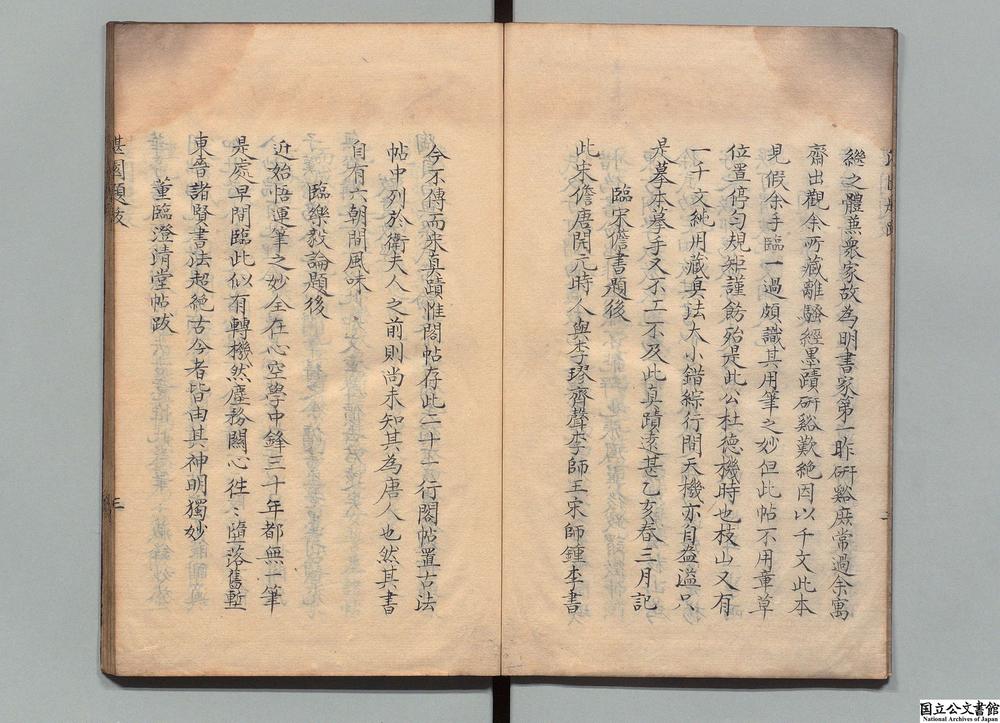 綫之體兼衆家故為明書家第一昨研谿庶常過余寓
齋出觀余所藏離騷經墨蹟研谿歎絶因以千文此本
見假余手臨一過頗識其用筆之妙但此帖不用章草
位置停匀規矩謹飭殆是此公杜德機時也枝山又有
一千文純用藏真法大小錯綜行間天機亦自盎溢只
是摹本摹手又不工不及此真蹟遠甚乙亥春三月記
臨宋儋書題後
此宋儋唐開元時人與李璆齊聲李師王宋師鍾李書
今不傳而宋真蹟惟閣帖存此二十一行閣帖置古法
帖中列於衛夫人之前則尚未知其為唐人也然其書
自有六朝間風味
臨樂毅論題後
近始悟運筆之妙全在心空學中鋒三十年都無一筆
是處早間臨此似有轉機然塵務關心往〻墮落舊塹
東晉諸賢書法超絶古今者皆由其神明獨妙
董臨澄清堂帖跋
湛園題跋
三
国立公文書館
National Archives of Japan